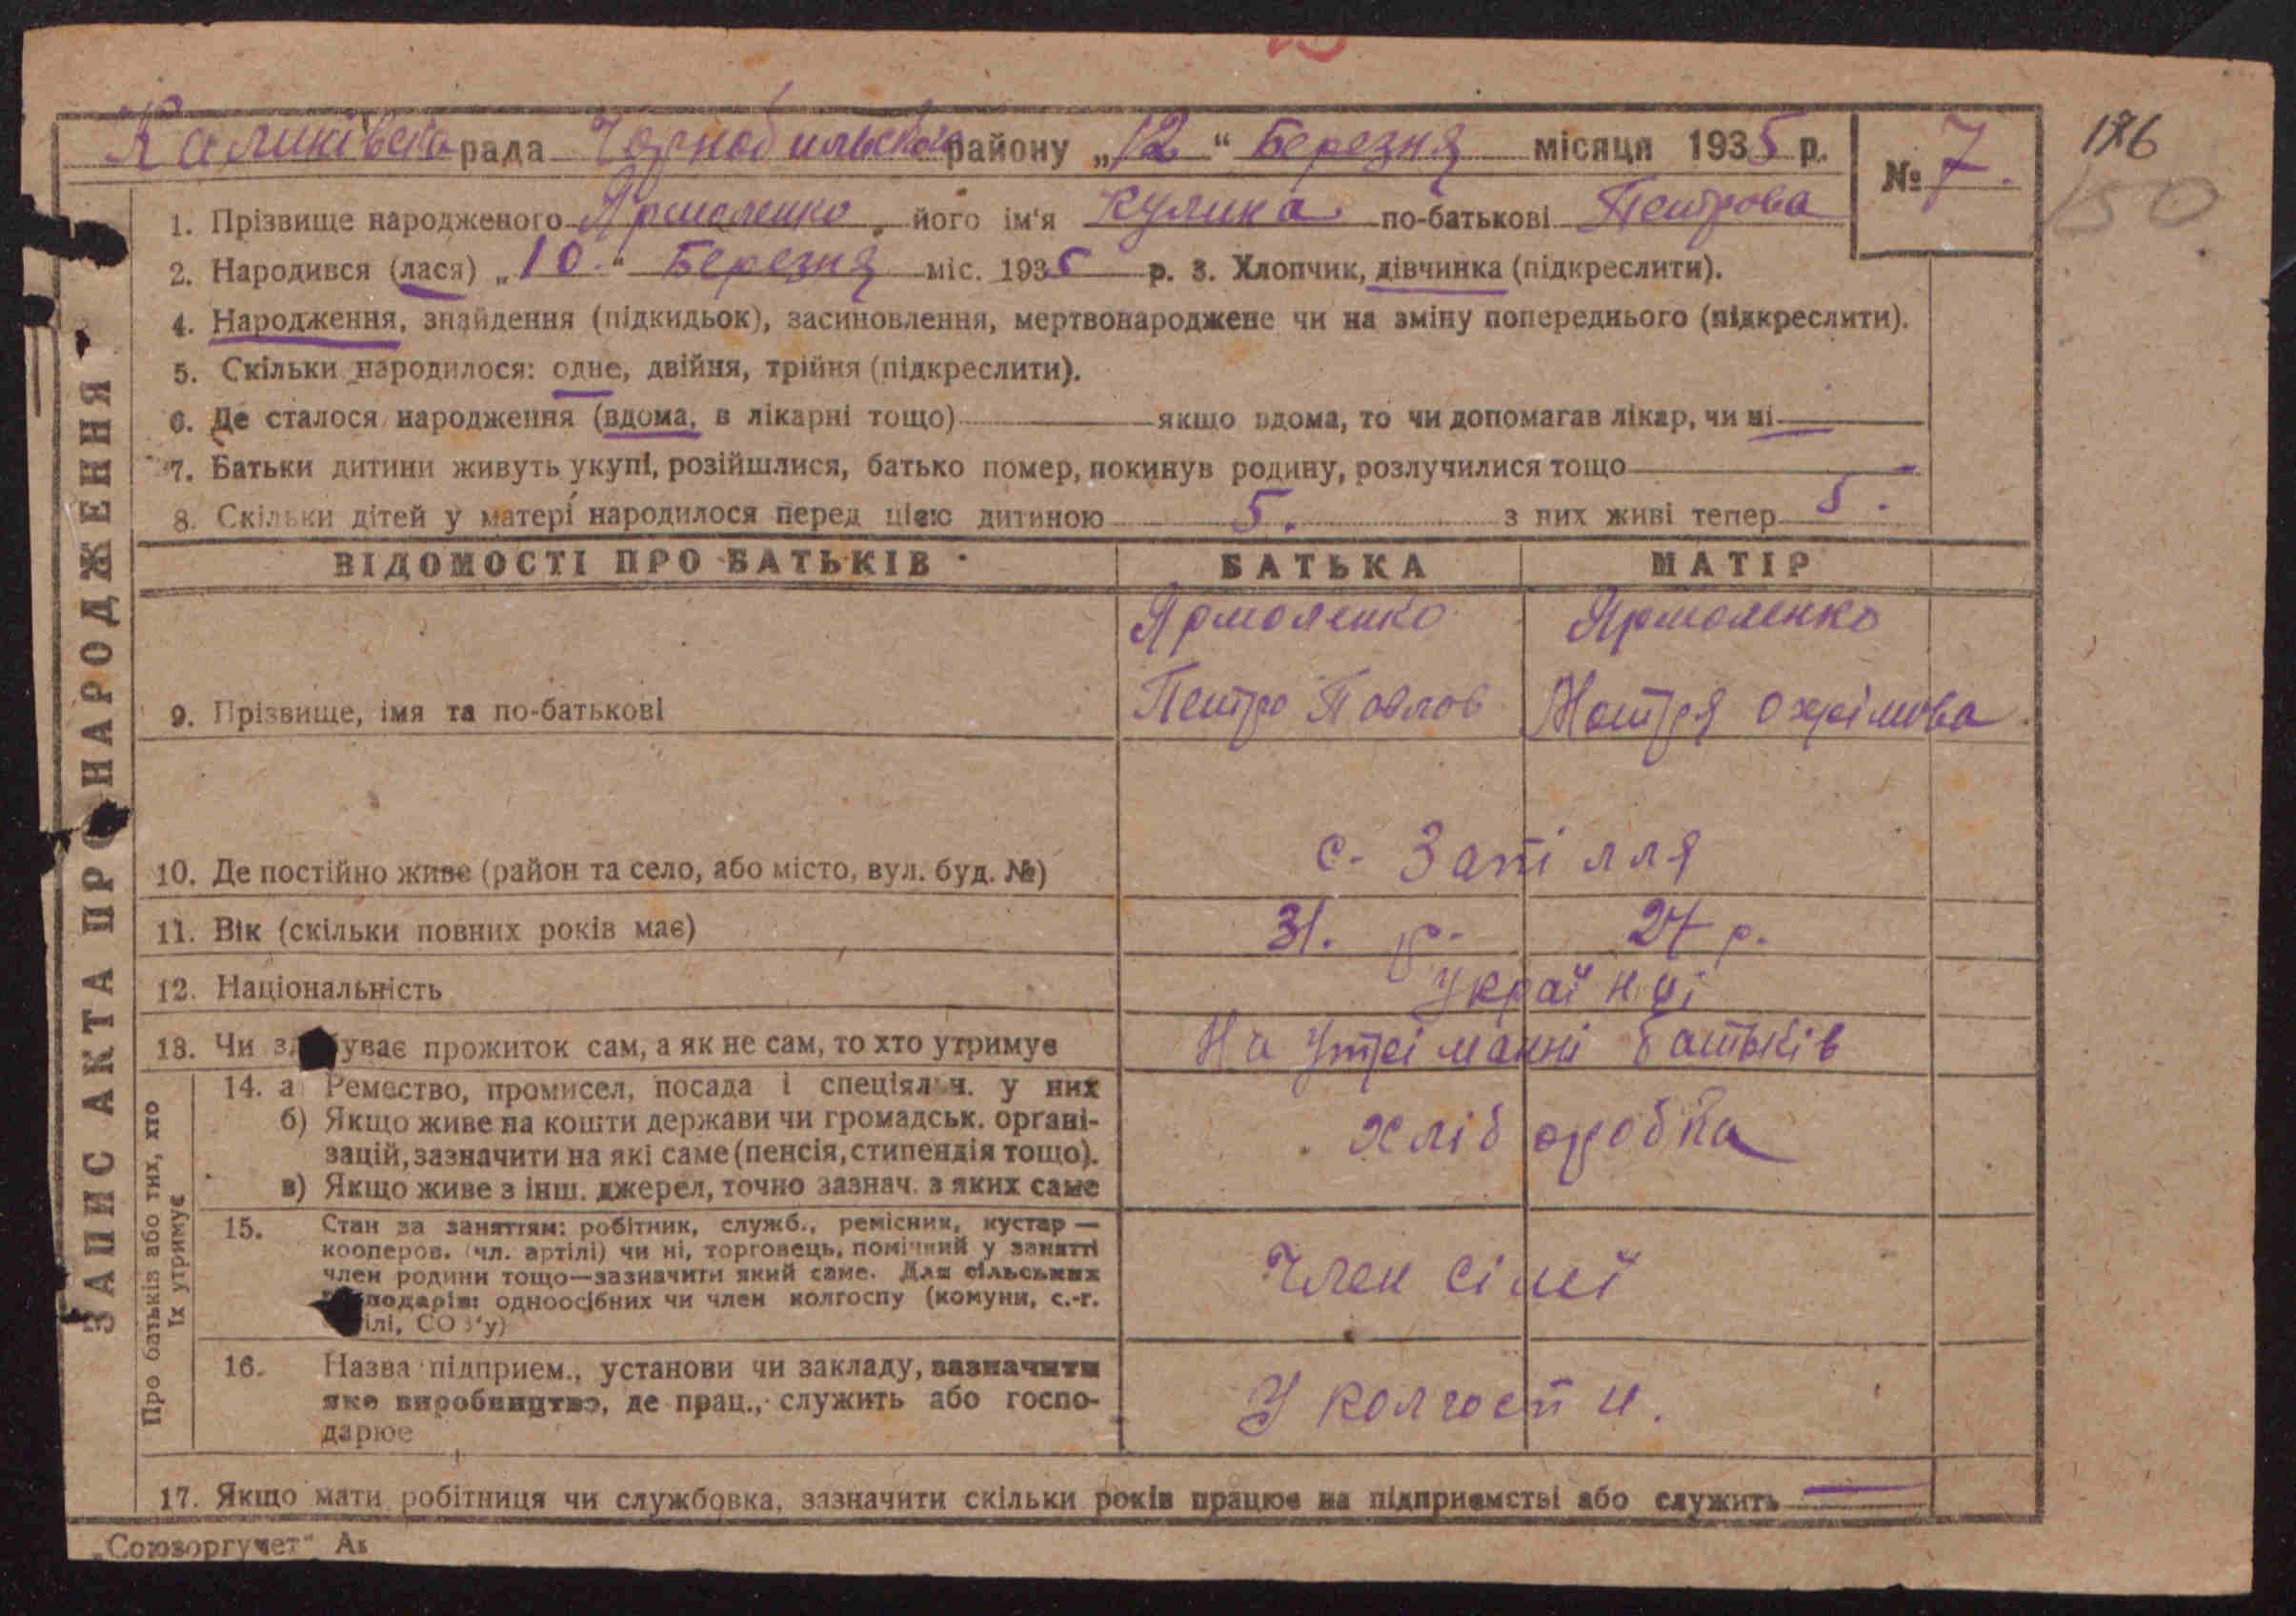 186
150
Каликівська рада Чорнобильського району „12“ Березня місяця 1935 р. № 7.
1. Прізвище народженого Ярмоленко, його ім'я Кулина по-батькові Петрова
2. Народився (лася) „10.“ Березня міс. 1935 р. 3. Хлопчик, дівчинка (підкреслити).
4. Народження, знайдення (підкидьок), засиновлення, мертвонароджене чи на зміну попереднього (підкреслити).
5. Скільки народилося: одне, двійня, трійня (підкреслити).
6. Де сталося народження (вдома, в лікарні тощо) якщо вдома, то чи допомагав лікар, чи ні
7. Батьки дитини живуть укупі, розійшлися, батько помер, покинув родину, розлучилися тощо
8. Скільки дітей у матері народилося перед цією дитиною 5. з них живі тепер 5.
ВІДОМОСТІ ПРО БАТЬКІВ БАТЬКА МАТІР
Ярмоленко Ярмоленко
9. Прізвище, імя та по-батькові Петро Павлов Мотря Охрімова
10. Де постійно живе (район та село, або місто, вул. буд. №) с. Запілля
11. Вік (скільки повних років має) 31. р. 27 р.
12. Національність Українці
13. Чи з уває прожиток сам, а як не сам, то хто утримує На утріманні батьків
14. а Ремество, промисел, посада і спеціяльн. у них
б) Якщо живе на кошти держави чи громадськ. орґані-
зацій, зазначити на які саме (пенсія, стипендія тощо). хліборобка
в) Якщо живе з інш. джерел, точно зазнач. з яких саме
15. Стан за заняттям: робітник, служб., ремісник, кустар —
кооперов. (чл. артілі) чи ні, торговець, помічний у занятті
член родини тощо—зазначити який саме. Для сільських Член сімї
господарів: одноосібних чи член колгоспу (комуни, с.-г.
ілі, СОЗ'у)
16. Назва підприєм., установи чи закладу, зазначити
яке виробництво, де прац., служить або госпо- У колгоспи.
дарює
17. Якщо мати робітниця чи службовка, зазначити скільки років працює на підприємстві або служить
„Союзоргучет“ Ак
ЗАПИС АКТА ПРО НАРОДЖЕННЯ
Про батьків або тих, хто
їх утримує